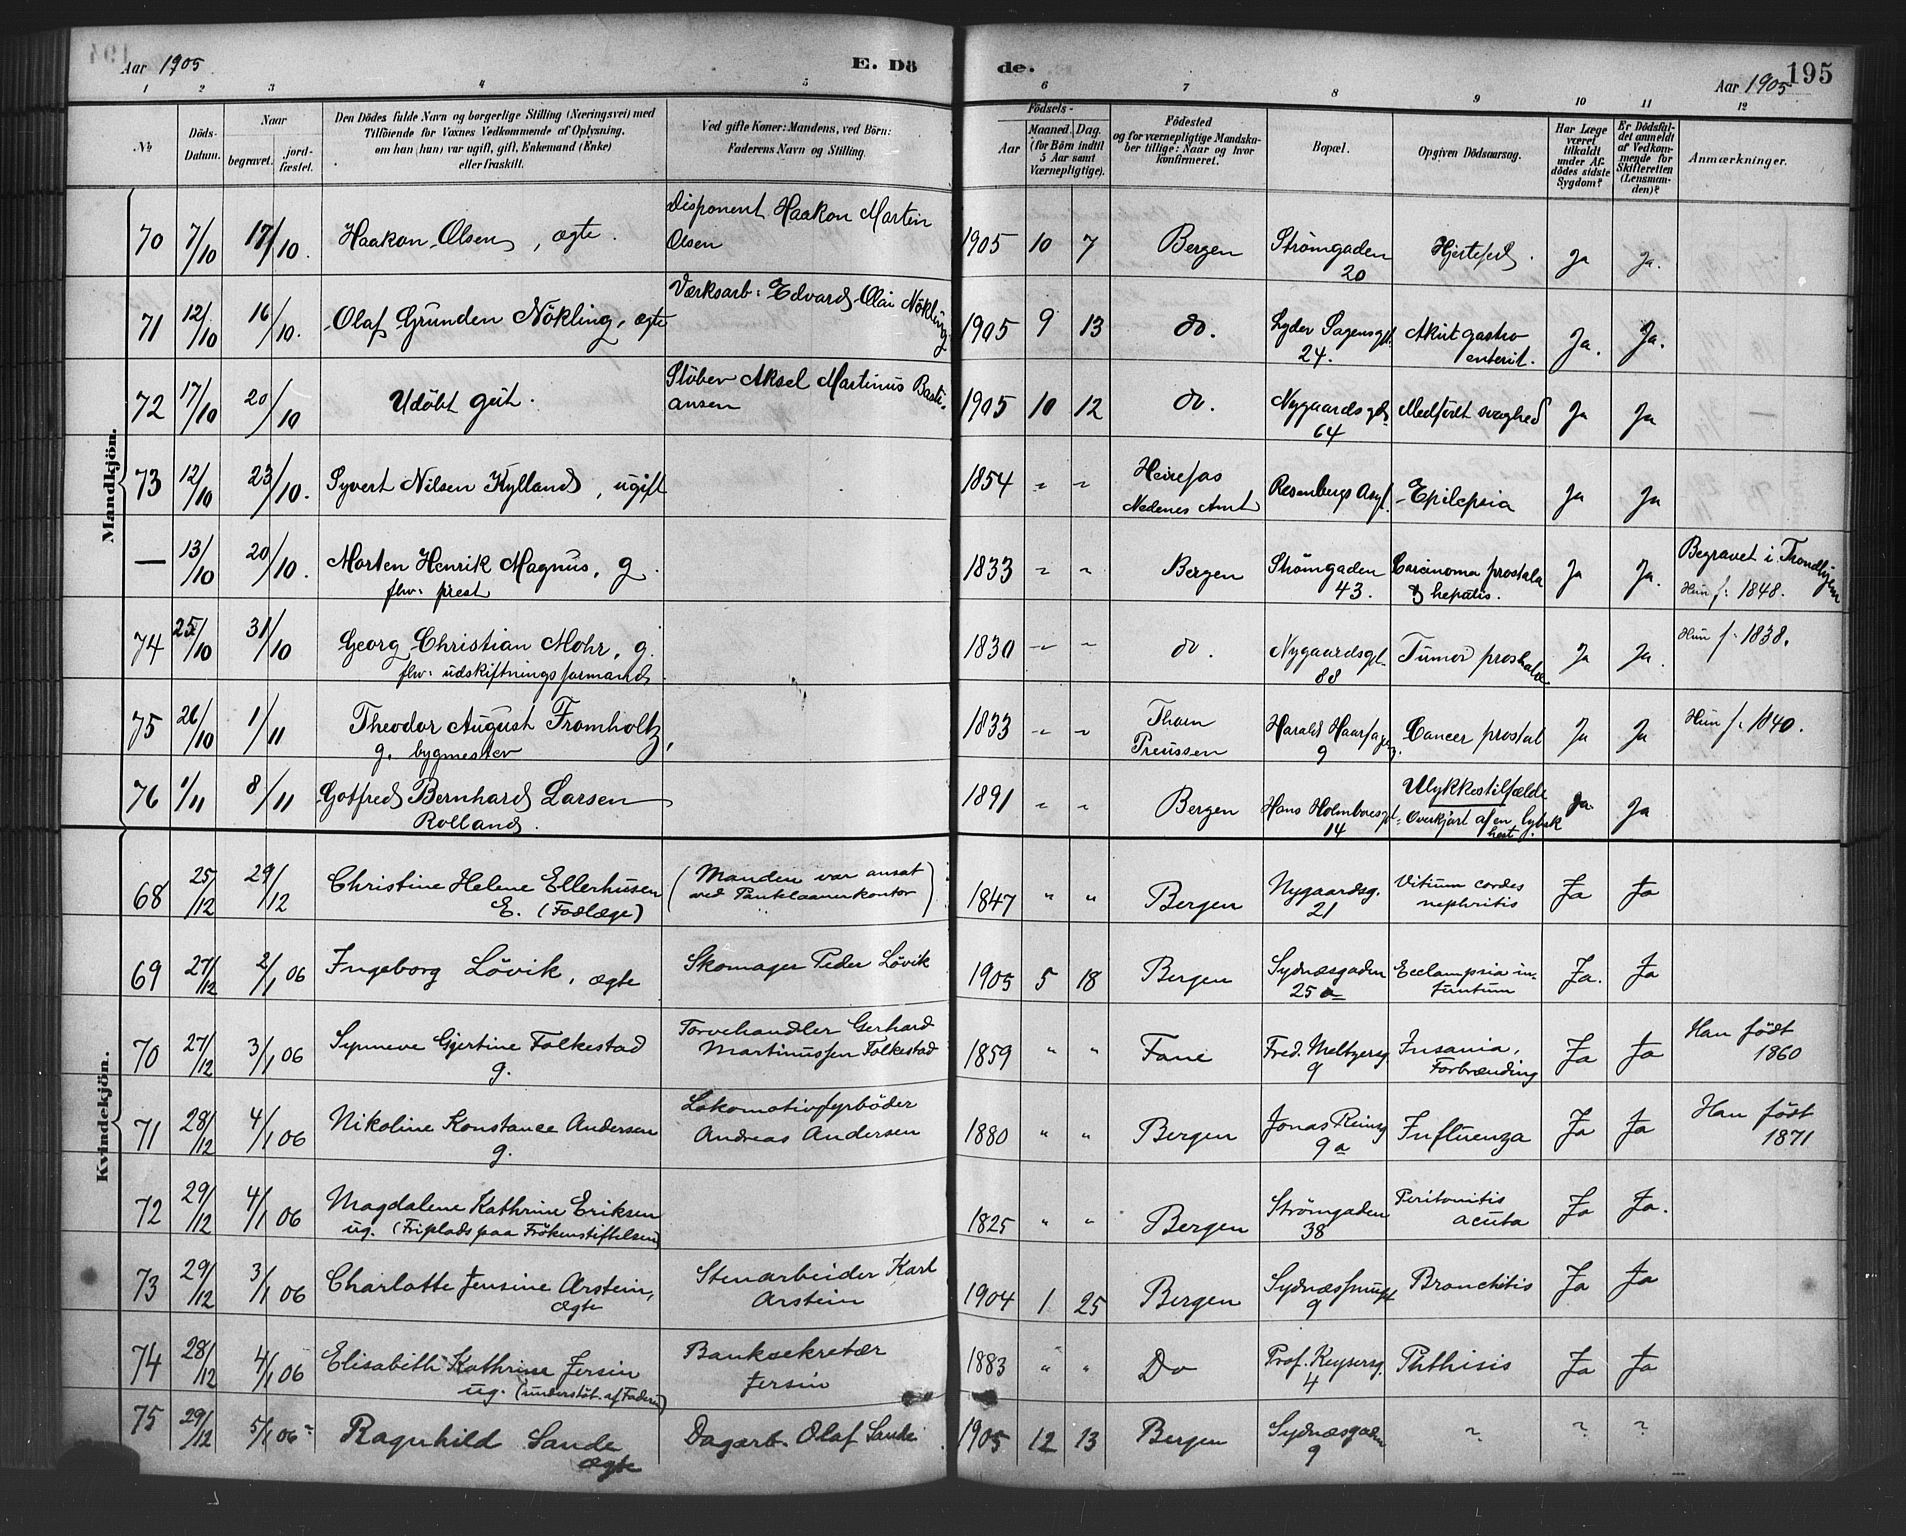 Aar 1905
E. Dö
de.
Aar 1905
195
1 2 3 4 5 6 7 8 9 10 11 12
No
Döds-Datum.
Naar
begravet.
jord-fæstet.
Den Dödes fulde Navn og borgerlige Stilling (Næringsvei) med
Tilföiende for Voxnes Vedkommende af Oplysning,
om han (hun) var ugift, gift, Enkemand (Enke)
eller fraskilt.
Ved gifte Koner: Mandens, ved Börn:
Faderens Navn og Stilling.
Födsels-
Aar
Maaned. Dag.
(for Börn indtil
5 Aar samt
Værnepligtige).
Födested
og for værnepligtige Mandska-
ber tillige: Naar og hvor
konfirmeret.
Bopæl.
Opgiven Dödsaarsag.
Har Læge
været
tilkaldt
under Af-
dödes sidste
Sygdom?
Er Dödsfal-
det anmeldt
af Vedkom-
mende for
Skifteretten
(Lensman-
den)?
Anmærkninger.
Mandkjön.
70 7/10 17/10. Haakon Olsen, ægte. Disponent Haakon Martin Olsen 1905 10 7 Bergen Strömgaden 20 Hjertefeil. Ja Ja.
71 12/10 16/10. Olaf Grunden Nökling, ægte Værksarb: Edvard Olai Nökling 1905 9 13 do. Lyder Sagensgt. 24. Akut gastro enterit. Ja. Ja.
72 17/10 20/10 Udöbt gut. Stöber Aksel Martinus Basti-ansen 1905 10 12 do. Nygaardsgd. 64 Medfödt svaghed Ja Ja —
73 12/10 23/10. Syvert Nilsen Kylland, ugift 1854 " " Heirefos Nedenes Amt Rosenbergs Asyl. Epilepsia Ja Ja
— 13/10 20/10. Morten Henrik Magnus, g. fhv: prest 1833 " " Bergen Strömgaden 43. Carcinoma prostata & hepatis. Ja Ja. Begravet i Trondhjem Hun f: 1848.
74 25/10 31/10 Georg Christian Mohr, g. fhv: udskiftningsformand. 1830 " " do. Nygaardsgt. 88 Tumor prostatae Ja Ja. Hun f: 1838.
75 26/10 1/11 Theodor August Fromholtz, g. bygmester 1833 " " Thorn Preussen Harald Haarfagresg. 9 Cancer prostat Ja Ja Hun f: 1840.
76 1/11 8/11 Gotfred Bernhard Larsen Rolland. 1891 " " Bergen Hans Holmboesgt. 14 Ulykkestilfælde Overkjørt af en hest Ja Ja
Kvindekjön.
68 25/12 29/12 Christine Helene Ellerhusen E. (Fodlæge) (Manden var ansat ved Pantelaanerkontor) 1847 " " Bergen Nygaardsg. 21 Vitium cordes nephritis Ja Ja
69 27/12 2/1 06 Ingeborg Lövik, ægte Skomager Peder Lövik 1905 5 18 Bergen Sydnæsgaden 25 a Ecclampsia in-fantum Ja. Ja
70 27/12 3/1 06 Synneve Gjertine Folkestad g. Torvehandler Gerhard Martinussen Folkestad 1859 " " Fane Fred. Meltzersg. 9 Insania, Forbrænding Ja Ja Han födt 1860
71 28/12 4/1 06 Nikoline Konstance Andersen g. Lokomotivfyrböder Andreas Andersen 1880 " " Bergen Jonas Reinsg 9 a Influenza Ja Ja Han födt 1871
72 29/12 4/1 06 Magdalene Kathrine Eriksen ug. (Friplads paa Frökenstiftelsen) 1825 " " Bergen Strömgaden 38 Peritonitis acuta Ja Ja.
73 29/12 3/1 06 Charlotte Jensine Arstein, ægte Stenarbeider Karl Arstein 1904 1 25 Bergen Sydnæssmuget 9 Bronchitis Ja Ja
74 28/12 4/1 06 Elisabeth Kathrine Jersin ug. (understöt. af Faderen) Banksekretær Jersin 1883 " " Do Prof. Keysersg. 4 Phthisis Ja Ja
75 29/12 5/1 06 Ragnhild Sande ægte Dagarb. Olaf Sande 1905 12 13 Bergen Sydnæsgaden 9 ? ? ?